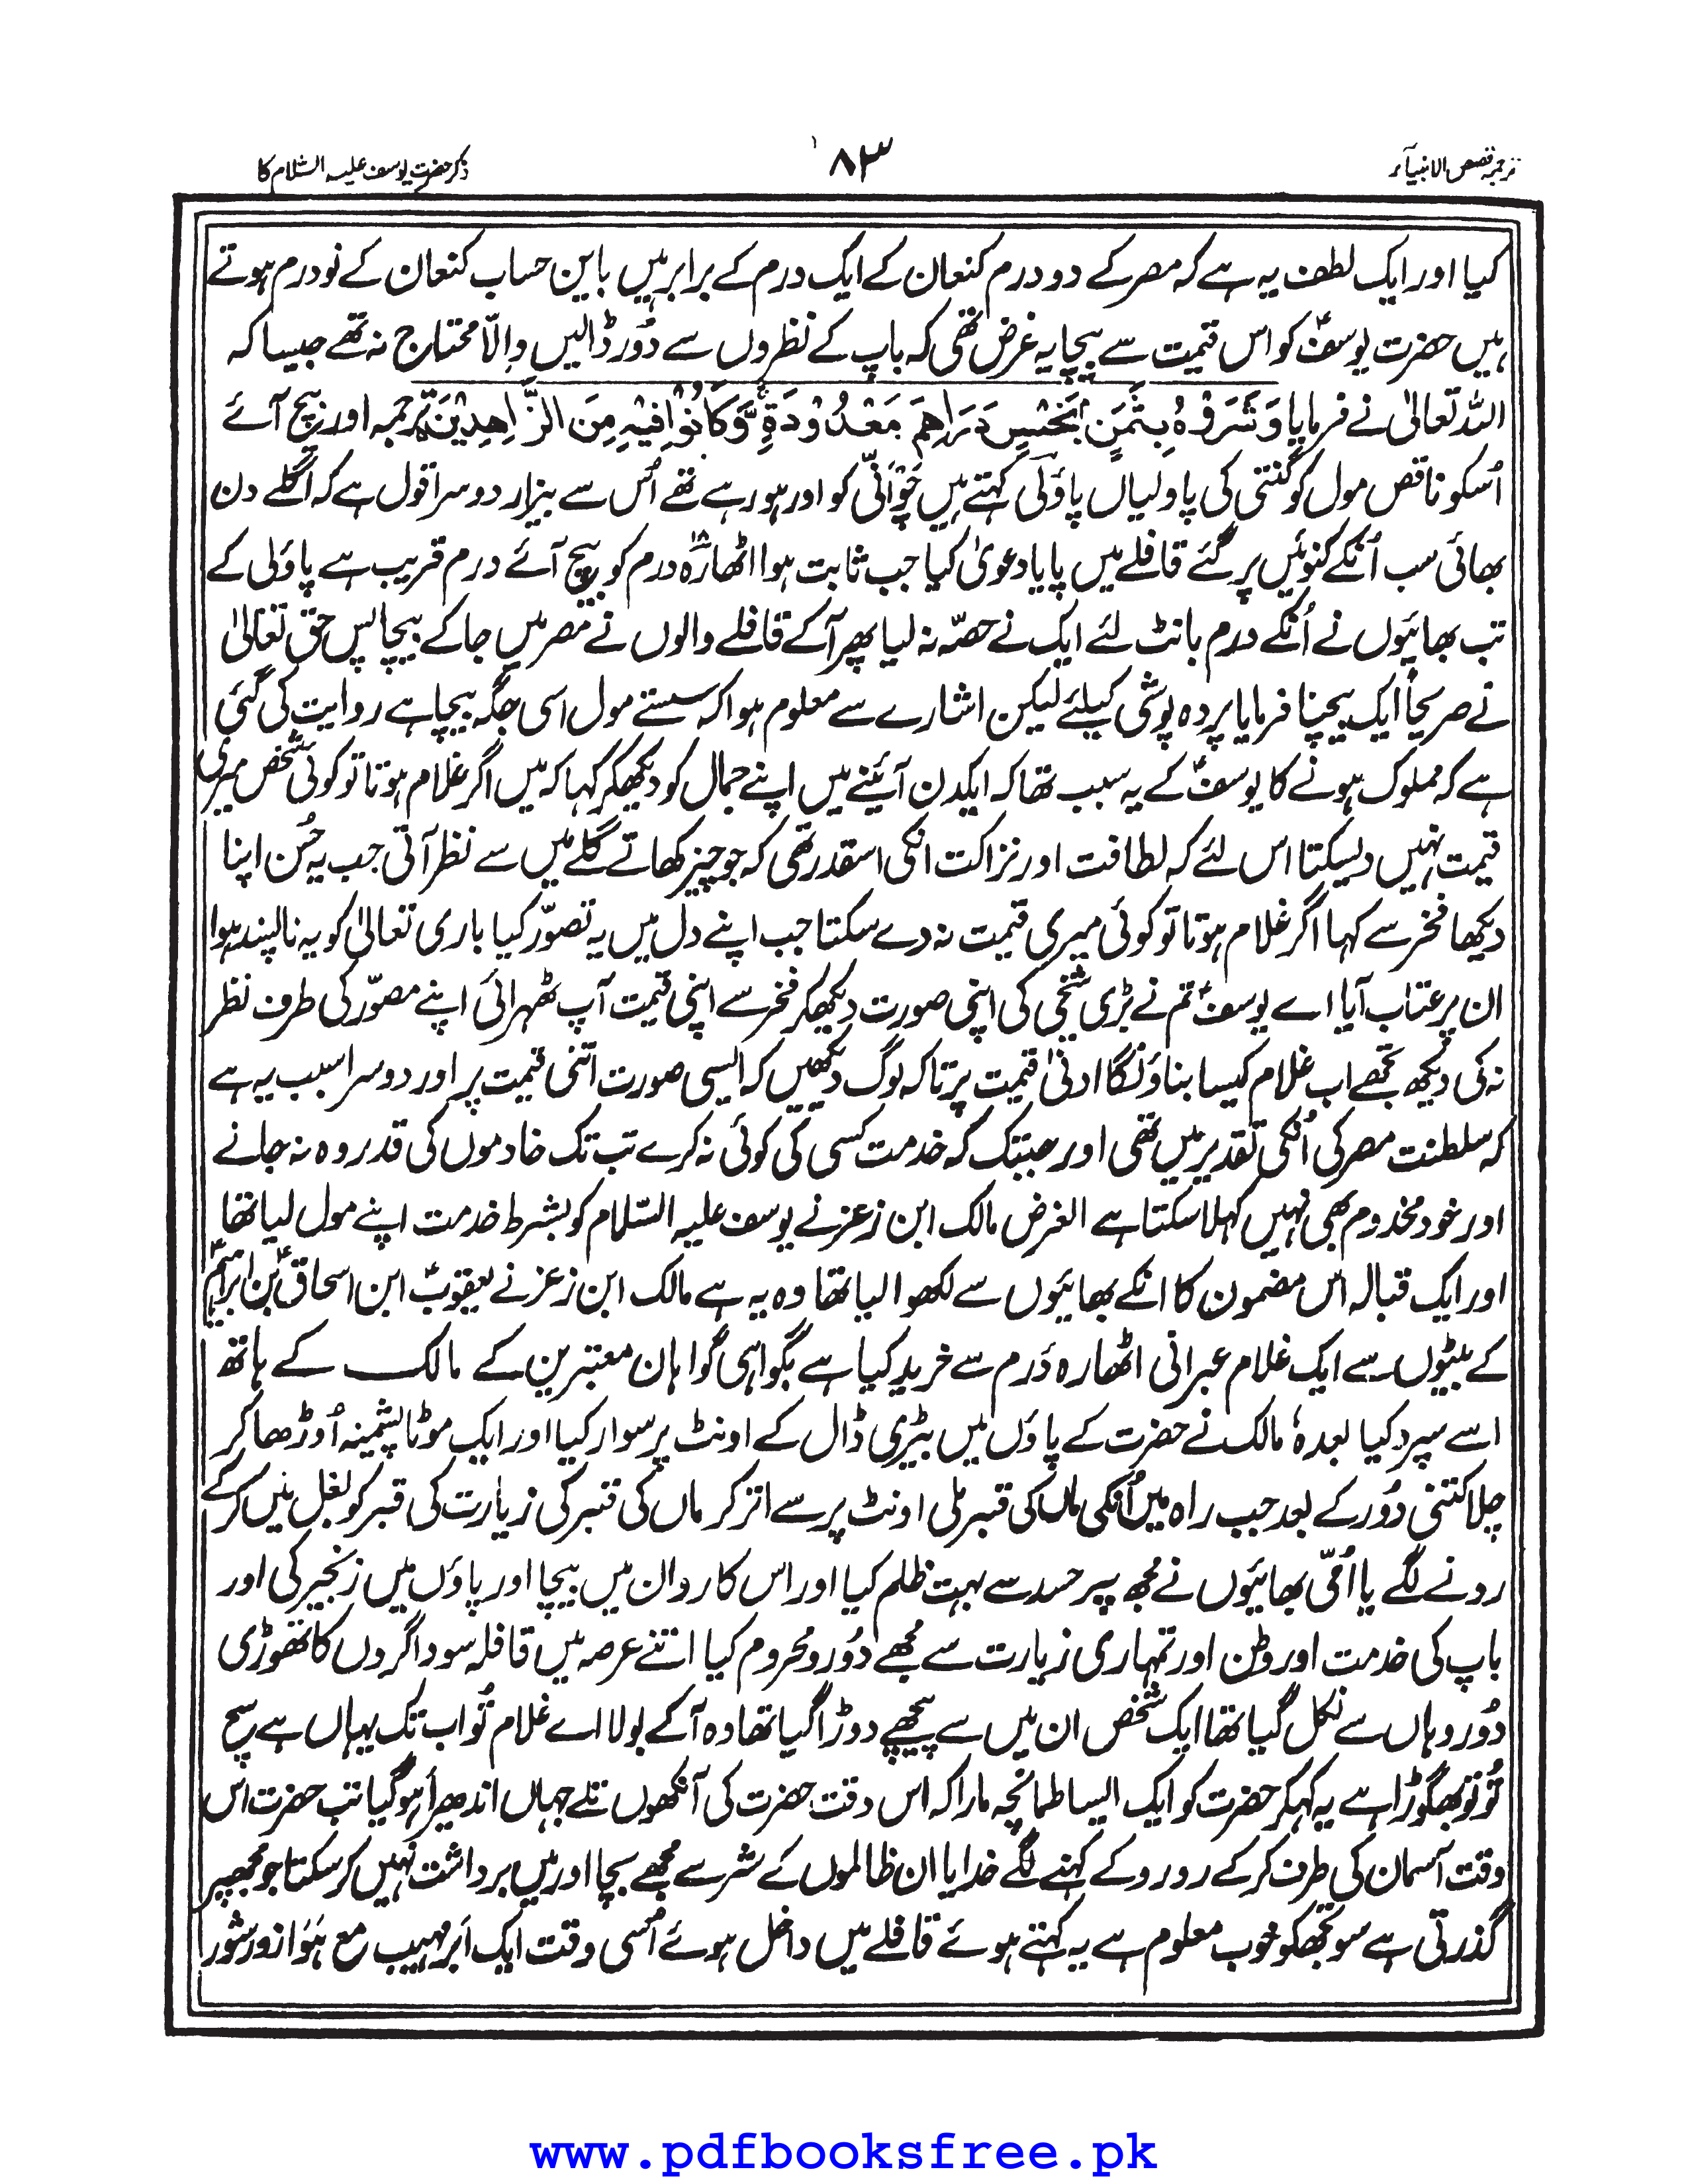 ترجمہ قصص الانبیآء
۸۳
ذکر حضرت یوسف علیہ السّلام کا
کیا اور ایک لطف یہ ہے کہ مصر کے دو درم کنعان کے ایک درم کے برابر ہیں باین حساب کنعان کے نو درم ہوتے
ہیں حضرت یوسفؑ کو اس قیمت سے بیچا یہ غرض تھی کہ باپ کے نظروں سے دُور ڈالیں واِلّا محتاج نہ تھے جیسا کہ
اللہ تعالیٰ نے فرمایا وَشَرَوْہُ بِثَمَنٍ بَخْسٍ دَرَاھِمَ مَعْدُوْدَۃٍ وَّکَانُوْا فِیْہِ مِنَ الزَّاھِدِیْنَ ترجمہ اور بیچ آئے
اُسکو ناقص مول کو گنتی کی پاولیاں پاؤلی کہتے ہیں چَوَانّی کو اور ہو رہے تھے اُس سے بیزار دوسرا قول ہے کہ اگلے دن
بھائی سب اُنکے کنوئیں پر گئے قافلے میں پایا دعویٰ کیا جب ثابت ہوا اٹھارہ۱۸ درم کو بیچ آئے درم قریب ہے پاؤلی کے
تب بھائیوں نے اُنکے درم بانٹ لئے ایک نے حصّہ نہ لیا پھر آکے قافلے والوں نے مصر میں جاکے بیچا پس حق تعالیٰ
نے صریحاً ایک بیچنا فرمایا پردہ پوشی کیلئے لیکن اشارے سے معلوم ہوا کہ سستے مول اسی جگہ بیچا ہے روایت کی گئی
ہے کہ مملوک ہونے کا یوسفؑ کے یہ سبب تھا کہ ایکدن آئینے میں اپنے جمال کو دیکھکر کہا کہ میں اگر غلام ہوتا تو کوئی شخص میری
قیمت نہیں دلسکتا اس لئے کہ لطافت اور نزاکت انکی اسقدر تھی کہ جو چیز کھاتے گلے میں سے نظر آتی جب یہ حُسن اپنا
دیکھا فخر سے کہا اگر غلام ہوتا تو کوئی میری قیمت نہ دے سکتا جب اپنے دل میں یہ تصوّر کیا باری تعالیٰ کو یہ ناپسند ہوا
ان پر عتاب آیا اے یوسفؑ تم نے بڑی شیخی کی اپنی صورت دیکھکر فخر سے اپنی قیمت آپ ٹھہرائی اپنے مصوّر کی طرف نظر
نہ کی دیکھ تجھے اب غلام کیسا بناؤنگا ادنیٰ قیمت پر تاکہ لوگ دیکھیں کہ ایسی صورت اتنی قیمت پر اور دوسرا سبب یہ ہے
کہ سلطنت مصر کی اُنکی تقدیر میں تھی اور جبتک کہ خدمت کسی کی کوئی نہ کرے تب تک خادموں کی قدر وہ نہ جانے
اور خود مخدوم بھی نہیں کہلا سکتا ہے الغرض مالک ابن زعر نے یوسف علیہ السّلام کو بشرط خدمت اپنے مول لیا تھا
اور ایک قبالہ اس مضمون کا انکے بھائیوں سے لکھوا لیا تھا وہ یہ ہے مالک ابن زعر نے یعقوبؑ ابن اسحاقؑ بن ابراہیمؑ
کے بیٹوں سے ایک غلام عبرانی اٹھارہ دَرم سے خرید کیا ہے بگواہی گواہان معتبرین کے مالک کے ہاتھ
اسے سپرد کیا بعدہٗ مالک نے حضرت کے پاؤں میں بیڑی ڈال کے اونٹ پر سوار کیا اور ایک موٹا پشمینہ اُوڑھا کر
چلا کتنی دُور کے بعد جب راہ میں اُنکی ماں کی قبر ملی اونٹ پر سے اتر کر ماں کی قبر کی زیارت کی قبر کو بغل میں کر کے
رونے لگے یا اُمّی بھائیوں نے مجھ پر حسد سے بہت ظلم کیا اور اس کاروان میں بیچا اور پاؤں میں زنجیر کی اور
باپ کی خدمت اور وطن اور تمہاری زیارت سے مجھے دُور و محروم کیا اتنے عرصہ میں قافلہ سوداگروں کا تھوڑی
دُور وہاں سے نکل گیا تھا ایک شخص ان میں سے پیچھے دوڑا گیا تھا وہ آکے بولا اے غلام تُو اب تک یہاں ہے سچ
تُو تو بھگوڑا ہے یہ کہکر حضرت کو ایک ایسا طمانچہ مارا کہ اس وقت حضرت کی آنکھوں تلے جہاں اندھیرا ہوگیا تب حضرت اس
وقت آسمان کی طرف کر کے رو رو کے کہنے لگے خدایا ان ظالموں کے شر سے مجھے بچا اور میں برداشت نہیں کر سکتا جو مجھپر
گذرتی ہے سو تجھکو خوب معلوم ہے یہ کہتے ہوئے قافلے میں داخل ہوئے اُسی وقت ایک اَبر مہیب مع ہَوَا زور شور
www.pdfbooksfree.pk